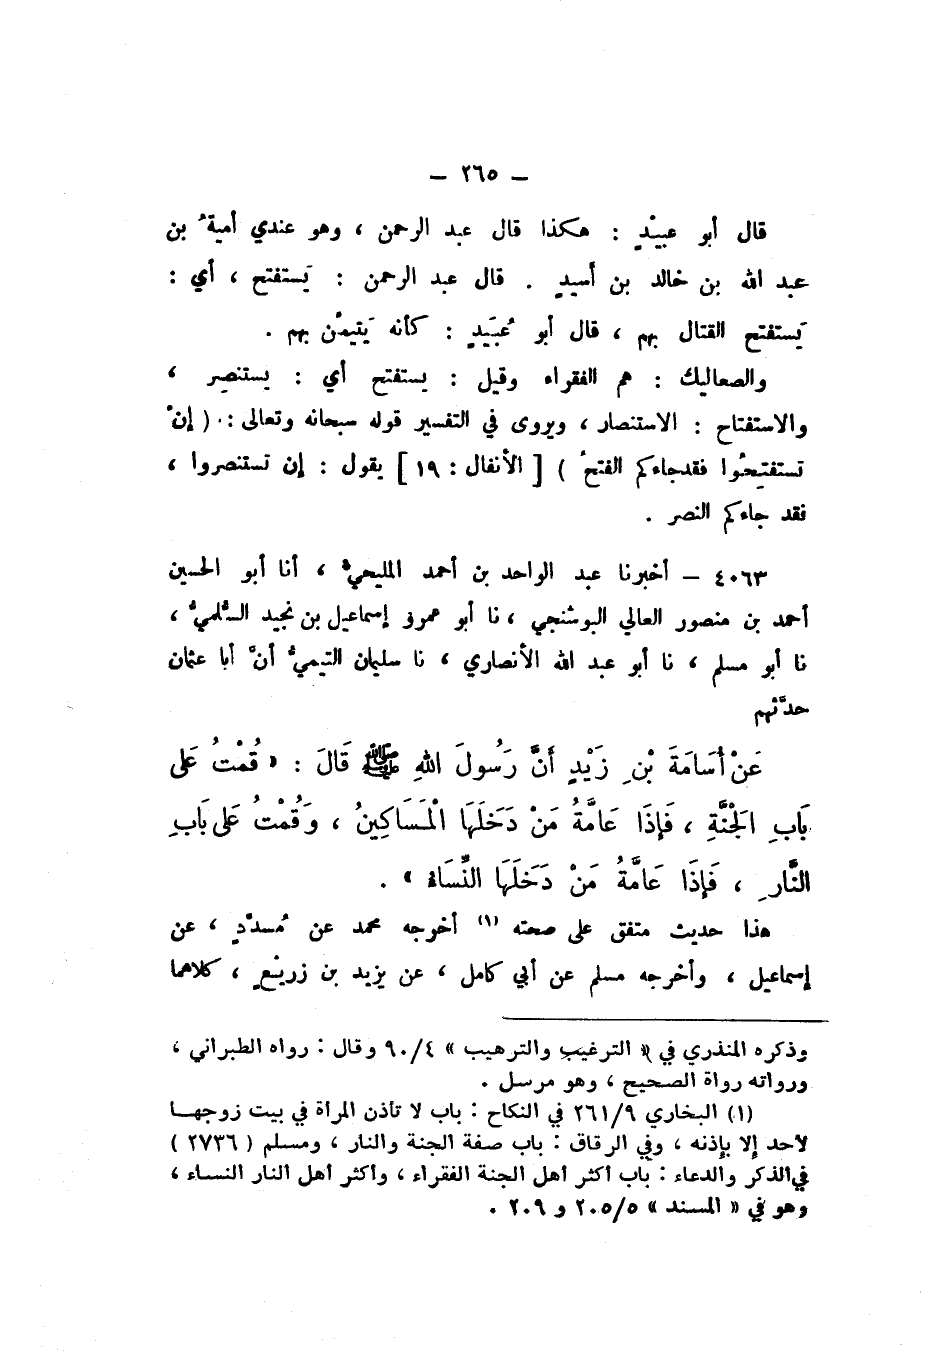 ـ ٢٦٥ ـ
قال أبو عبيْدٍ : هكذا قال عبد الرحمن ، وهو عندي أميةُ بن
عبد الله بن خالد بن أَسيدٍ . قال عبد الرحمن : يَستفتح ، أي :
يَستفتح القتال بهم ، قال أبو عُبَيدٍ : كأنه يَتيمَّن بهم .
والصعاليك : هم الفقراء وقيل : يستفتح أي : يستنصِر ،
والاستفتاح : الاستنصار ، ويروى في التفسير قوله سبحانه وتعالى : ( إنْ
تستفتِحُوا فقدجاءكم الفتحُ ) [ الأنفال : ١٩ ] يقول : إن تستنصروا ،
فقد جاءكم النصر .
٤٠٦٣ ـ أخبرنا عبد الواحد بن أحمد المليحيُّ ، أنا أبو الحسين
أحمد بن منصور العالي البوشنجي ، نا أبو عمرو إسماعيل بن نجيد السُّلميُّ ،
نا أبو مسلم ، نا أبو عبد الله الأنصاري ، نا سليمان التيميُّ أنَّ أبا عثمان
حدَّثهم
عَنْ أُسَامَةَ بْنِ زَيْدٍ أَنَّ رَسُولَ اللهِ ﷺ قَالَ : « قُمْتُ عَلَى
بَابِ الجَنَّةِ ، فَإِذَا عَامَّةُ مَنْ دَخَلَهَا الْمَسَاكِينُ ، وَقُمْتُ عَلَى بَابِ
النَّارِ ، فَإِذَا عَامَّةُ مَنْ دَخَلَهَا النِّسَاءُ » .
هذا حديث متفق على صحته (١) أخرجه محمد عن مُسدَّدٍ ، عن
إسماعيل ، وأخرجه مسلم عن أبي كامل ، عن يزيد بن زريْعٍ ، كلاهما
وذكره المنذري في « الترغيب والترهيب » ٩٠/٤ وقال : رواه الطبراني ،
ورواته رواة الصحيح ، وهو مرسل .
(١) البخاري ٢٦١/٩ في النكاح : باب لا تأذن المرأة في بيت زوجهـا
لأحد إلا بإذنه ، وفي الرقاق : باب صفة الجنة والنار ، ومسلم ( ٢٧٣٦ )
في الذكر والدعاء : باب أكثر أهل الجنة الفقراء ، وأكثر أهل النار النساء ،
وهو في « المسند » ٢٠٥/٥ و ٢٠٩ .